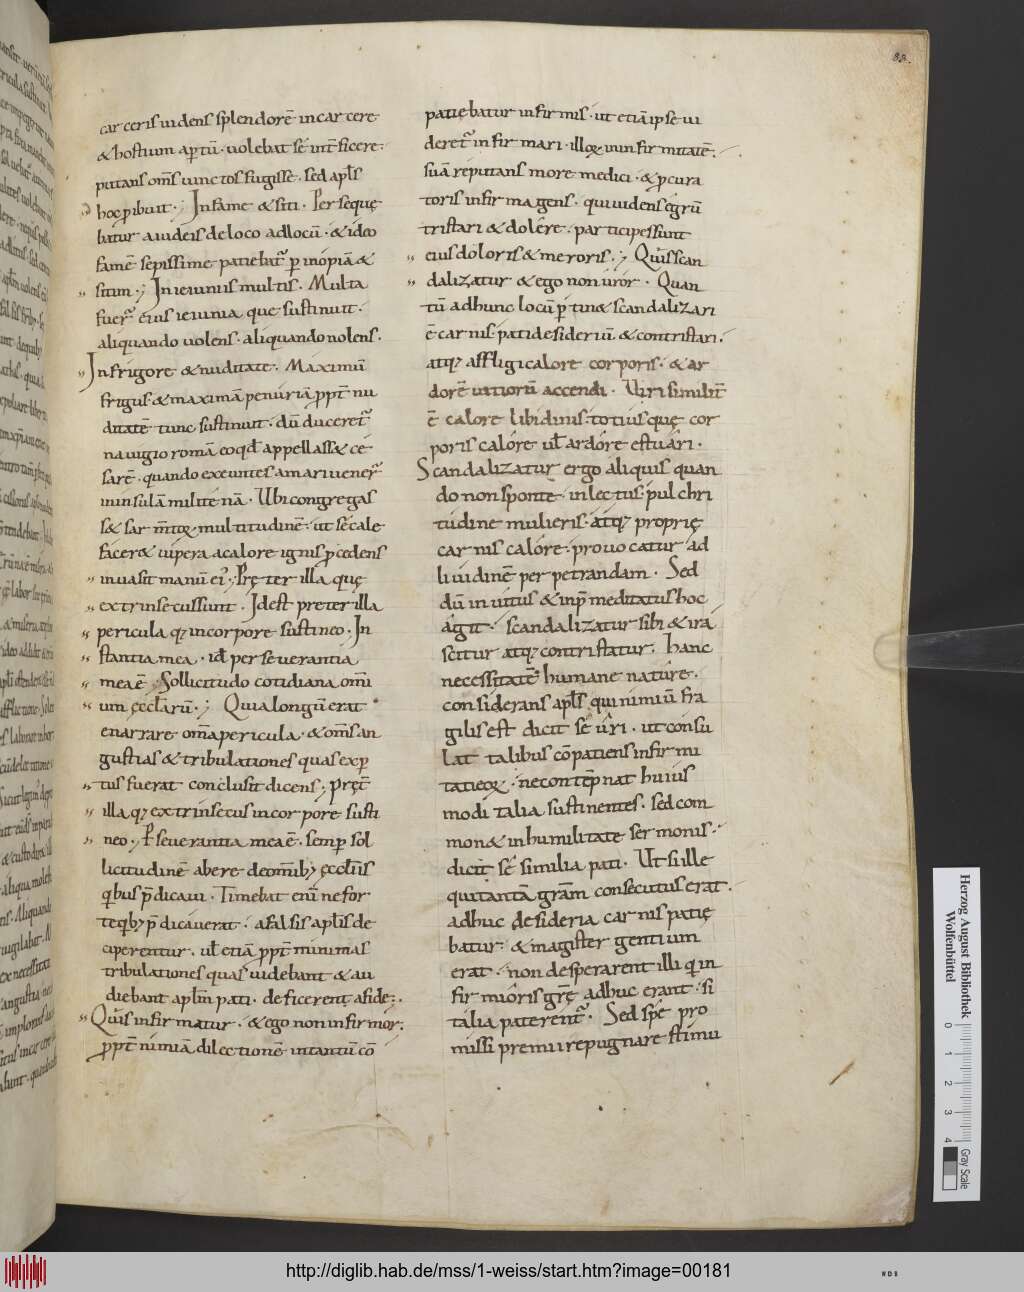 88.
carceris uidens splendorē in carcere
& hostium aptū· uolebat sé int̄ficere·
putans om̄s iunctos fugisse· sed apl̄s
hoc p̱ibuit·; In fame & siti· Perseque
batur a iudeis de loco ad locū· & ideo
famē sepissime patiebat᷒ p̱ inopiā &
sitim·; In ieiuniis multis· Multa
fuer᷒ eius ieiunia que sustinuit·
aliquando uolens· aliquando nolens·
In frigore & nuditate· Maximū
frigus· & maximā penuriā p̱pt̄ nu
ditatē tunc sustinuit· dū duceret᷒
nauigio romā
sarē· quando exeuntes a mari uener᷒
in insulā militenā· Ubi congregas
s& sarm̄toꝝ multitudinē· ut sé cale
facer& uipera a calore ignis p̱cedens
inuasit manū ei᷒·; Pręter illa quę
extrinsecus sunt· Idest preter illa
pericula q; in corpore sustineo· In
stantia mea· id̄ perseuerantia
mea ē· Sollicitudo cotidiana omni
um ęccl̄arū·; Quia longū erat
enarrare om̄a pericula· & om̄s an
gustias & tribulationes quas exp̱
tus fuerat conclusit dicens; Pręt̄
illa q; extrinsecus in corpore susti
neo·; P̱seuerantia mea ē· semp̱ sol
licitudinē abere de om̄ib; ęccl̄iis
q̇bus p̄dicaui· Timebat eni᷒ ne for
te q̇b; p̄dicauerat· a falsis apl̄is de
ciperentur· ul̄ etiā p̱pt̄ nimias
tribulationes quas uidebant & au
diebant apl̄m pati· deficerent a fide·
Quis infirmatur· & ego non infirmor·
p̱pt̄ nimiā dilectionē in tantū cō
patiębatur infirmis· ut etiā ipse ui
deret᷒ infirmari· illoꝝ in infirmitatē·
suā reputans more medici· & p̱cura
toris infirma gens· qui uidens ęgrū
tristari & dolére· participes sunt
eius doloris & meroris·; Quis scan
dalizatur & ego non úrór· Quan
tū ad hunc locū p̱tin& scandalizari
ē carnis· pati desideriū & contristari·
atq; affligi calore corporis· & ar
dorē uitiorū accendi· Uiri similit̄
ē calore libidinis· totiusque cor
poris calóre ul̄ ardóre estuári·
Scandalizatur ergo aliquis quan
do non sponte· in lectus· pulchri
tudine mulieris· atq; proprię
carnis calóre· prouocatur ád
liuidinē perpetrandam· Sed
dū inuitus & inp̄meditatus hoc
ágit· scandalizatur sibi & irá
scitur atq; contristatur· Hanc
necessitatē humane naturę·
considerans apl̄s qui nimiū fra
gilis est dicit sé úri· ut consu
lat talibus cōpatiens infirmi
tatieoꝝ· nec contēpnat huius
modi talia sustinentes· sed com
mon& in humilitate sermonis·
dicit sé similia pati· Ut si ille
qui tantā gr̄am consecutus erat·
adhuc desideria carnis patię
batur· & magister gentium
erat· non desperarent illi qui in
firmióris gr̄ę adhuc erant· si
talia paterent᷒· Sed spe pro
missi premii repugnare stimu
Herzog August Bibliothek
Wolfenbüttel
0 1 2 3 4
Gray Scale
http://diglib.hab.de/mss/1-weiss/start.htm?image=00181